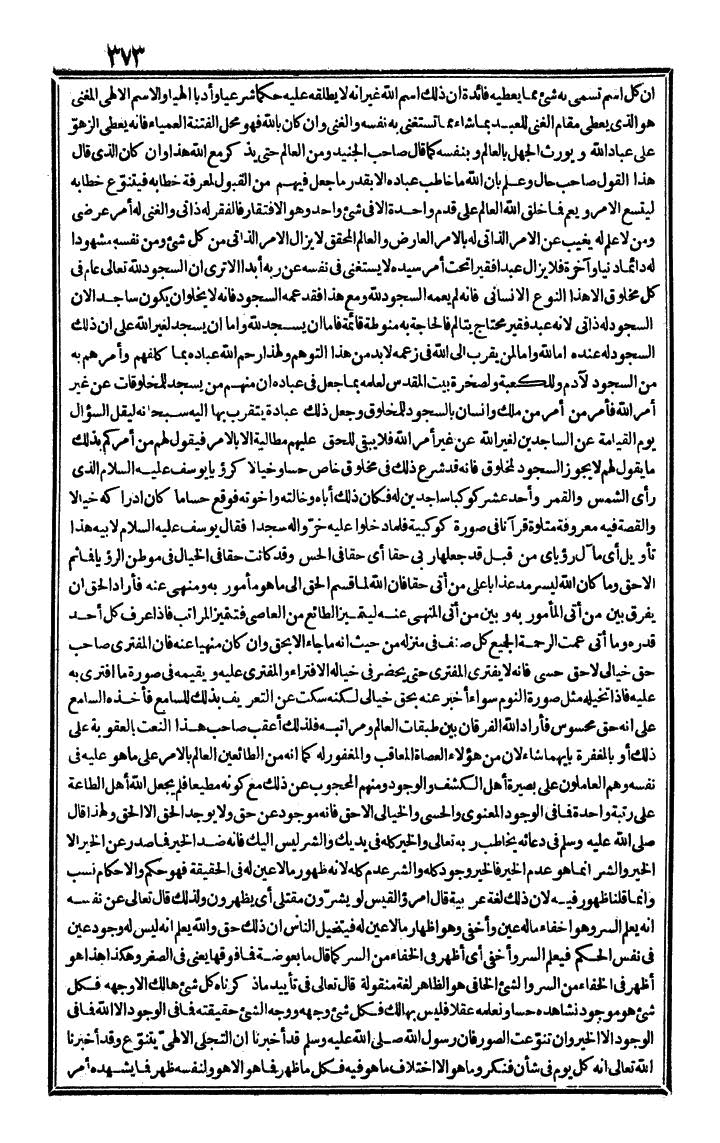 ٣٧٣
ان كل اسم تسمى به شئ مما يعطيه فائدة ان ذلك اسم الله غير انه لا يطلقه عليه حكما شرعيا وأدبا الهيا والاسم الالهى المغنى
هو الذى يعطى مقام الغنى للعبد بما شاء مما تستغنى به نفسه والغنى وان كان بالله فهو محل الفتنة العمياء فانه يعطى الزهو
على عباد الله و يورث الجهل بالعالم و بنفسه كما قال صاحب الجنيد ومن العالم حتى يذكر مع الله هذا وان كان الذى قال
هذا القول صاحب حال وعلم بان الله ما خاطب عباده الا بقدر ما جعل فيهم من القبول لمعرفة خطابه فيتنوّع خطابه
ليتسع الامر و يعم فما خلق الله العالم على قدم واحدة الا فى شئ واحد وهو الافتقار فالفقر له ذاتى والغنى له أمر عرضى
ومن لا علم له يغيب عن الامر الذاتى له بالامر العارض والعالم المحقق لا يزال الامر الذاتى من كل شئ ومن نفسه مشهودا
له دائما دنيا وآخرة فلا يزال عبدا فقيرا تحت أمر سيده لا يستغنى فى نفسه عن ربه أبدا ألا ترى ان السجود لله تعالى عام فى
كل مخلوق الا هذا النوع الانسانى فانه لم يعمه السجود لله ومع هذا فقد عمه السجود فانه لا يخلو ان يكون ساجدا لان
السجود له ذاتى لانه عبد فقير محتاج يتألم فالحاجة به منوطة قائمة فاما ان يسجد لله واما ان يسجد لغير الله على ان ذلك
السجود له عنده اما لله واما لمن يقرب الى الله فى زعمه لا بد من هذا التوهم ولهذا رحم الله عباده بما كلفهم وأمرهم به
من السجود لآدم وللكعبة ولصخرة بيت المقدس لعلمه بما جعل فى عباده ان منهم من يسجد للمخلوقات عن غير
أمر الله فأمر من أمر من ملك وانسان بالسجود للمخلوق وجعل ذلك عبادة يتقرب بها اليه سبحانه ليقل السؤال
يوم القيامة عن الساجدين لغير الله عن غير أمر الله فلا يبقى للحق عليهم مطالبة الا بالامر فيقول لهم من أمركم بذلك
ما يقول لهم لا يجوز السجود لمخلوق فانه قد شرع ذلك فى مخلوق خاص حسا وخيالا كرؤيا يوسف عليه السلام الذى
رأى الشمس والقمر وأحد عشر كوكبا ساجدين له فكان ذلك أباه وخالته واخوته فوقع حسا ما كان ادراكه خيالا
والقصة فيه معروفة متلوة قرآنا فى صورة كوكبية فلما دخلوا عليه خرّوا له سجدا فقال يوسف عليه السلام لابيه هذا
تأويل أى مآل رؤياى من قبل قد جعلها ربى حقا أى حقا فى الحس وقد كانت حقا فى الخيال فى موطن الرؤيا فما ثم
الا حق وما كان الله ليسرمد عذابا على من أتى حقا فان الله لما قسم الحق الى ما هو مأمور به ومنهى عنه فأراد الحق ان
يفرق بين من أتى المأمور به و بين من أتى المنهى عنه ليتميز الطائع من العاصى فتتميز المراتب فاذا عرف كل أحد
قدره وما أتى عمت الرحمة الجميع كل صنف فى منزله من حيث انه ما جاء الا بحق وان كان منهيا عنه فان المفترى صاحب
حق خيالى لا حق حسى فانه لا يفترى المفترى حتى يحضر فى خياله الافتراء والمفترى عليه و يقيمه فى صورة ما افترى به
عليه فاذا تخيله مثل صورة النوم سواء أخبر عنه بحق خيالى لكنه سكت عن التعريف بذلك للسامع فأخذه السامع
على انه حق محسوس فأراد الله الفرقان بين طبقات العالم ومراتبه فلذلك أعقب صاحب هذا النعت بالعقوبة على
ذلك أو بالمغفرة بايهما شاء لان من هؤلاء العصاة المعاقب والمغفور له كما انه من الطائعين العالم بالامر على ما هو عليه فى
نفسه وهم العاملون على بصيرة أهل الكشف والوجود ومنهم المحجوب عن ذلك مع كونه مطيعا فلم يجعل الله أهل الطاعة
على رتبة واحدة فما فى الوجود المعنوى والحسى والخيالى الا حق فانه موجود عن حق ولا يوجد الحق الا الحق ولهذا قال
صلى الله عليه وسلم فى دعائه يخاطب ربه تعالى والخير كله فى يديك والشر ليس اليك فانه ضد الخير فما صدر عن الخير الا
الخير والشر انما هو عدم الخير فالخير وجود كله والشر عدم كله لانه ظهور ما لا عين له فى الحقيقة فهو حكم والاحكام نسب
وانما قلنا ظهور فيه لان ذلك لغة عربية قال امرؤ القيس لو يشرّون مقتلى أى يظهرون ولذلك قال تعالى عن نفسه
انه يعلم السر وهو اخفاء ما له عين وأخفى وهو اظهار ما لا عين له فيتخيل الناس ان ذلك حق والله يعلم انه ليس له وجود عين
فى نفس الحكم فيعلم السر وأخفى أى أظهر فى الخفاء من السر كما قال ما بعوضة فما فوقها يعنى فى الصغر وهكذا هذا هو
أظهر فى الخفاء من السر والشئ الخافى هو الظاهر لغة منقولة قال تعالى فى تأييد ما ذكرناه كل شئ هالك الا وجهه فكل
شئ هو موجود نشاهده حسا ونعلمه عقلا فليس بهالك فكل شئ وجهه ووجه الشئ حقيقته فما فى الوجود الا الله فما فى
الوجود الا الخير وان تنوّعت الصور فان رسول الله صلى الله عليه وسلم قد أخبرنا ان التجلى الالهى يتنوّع وقد أخبرنا
الله تعالى انه كل يوم فى شأن فنكر وما هو الا اختلاف ما هو فيه فكل ما ظهر فما هو الا هو ولنفسه ظهر فما يشهده أمر